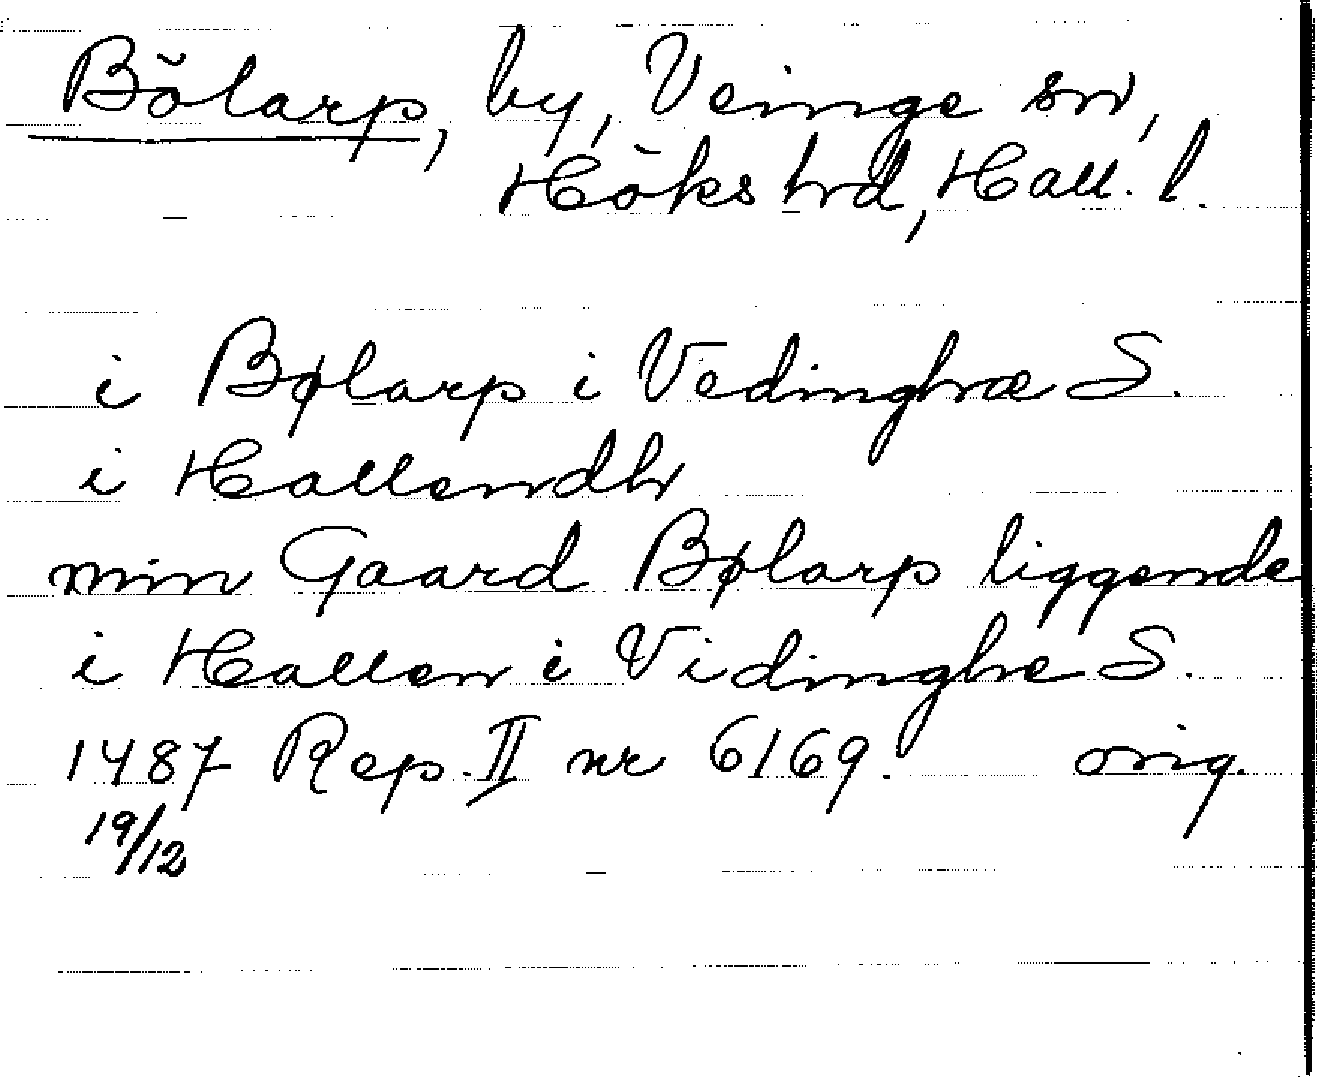 Bölarp, by, Veinge sn,
Höks hrd, Hall. l.
i Bølarp i Vedinghæ S.
i Hallendh
min Gaard Bølarp liggende
i Hallen i Vidinghe S.
1487 Rep. II nr 6169. orig.
19/12